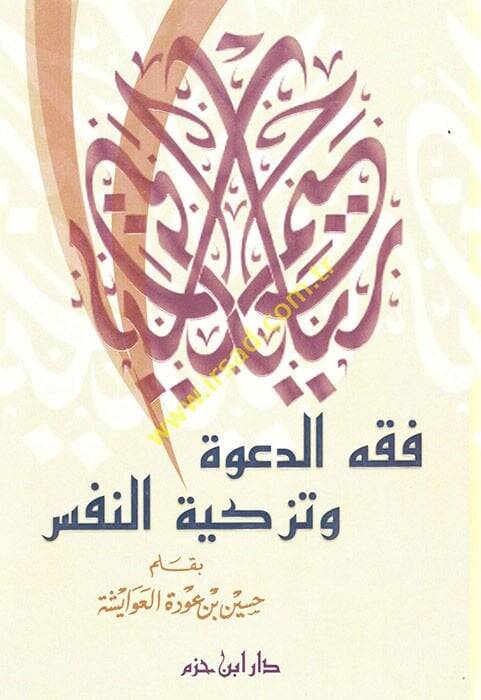 www.irsad.com.tr
فقه الدعوة
وتزكية النفس
بقلم
حسين بن عودة العوايشة
دار ابن حزم